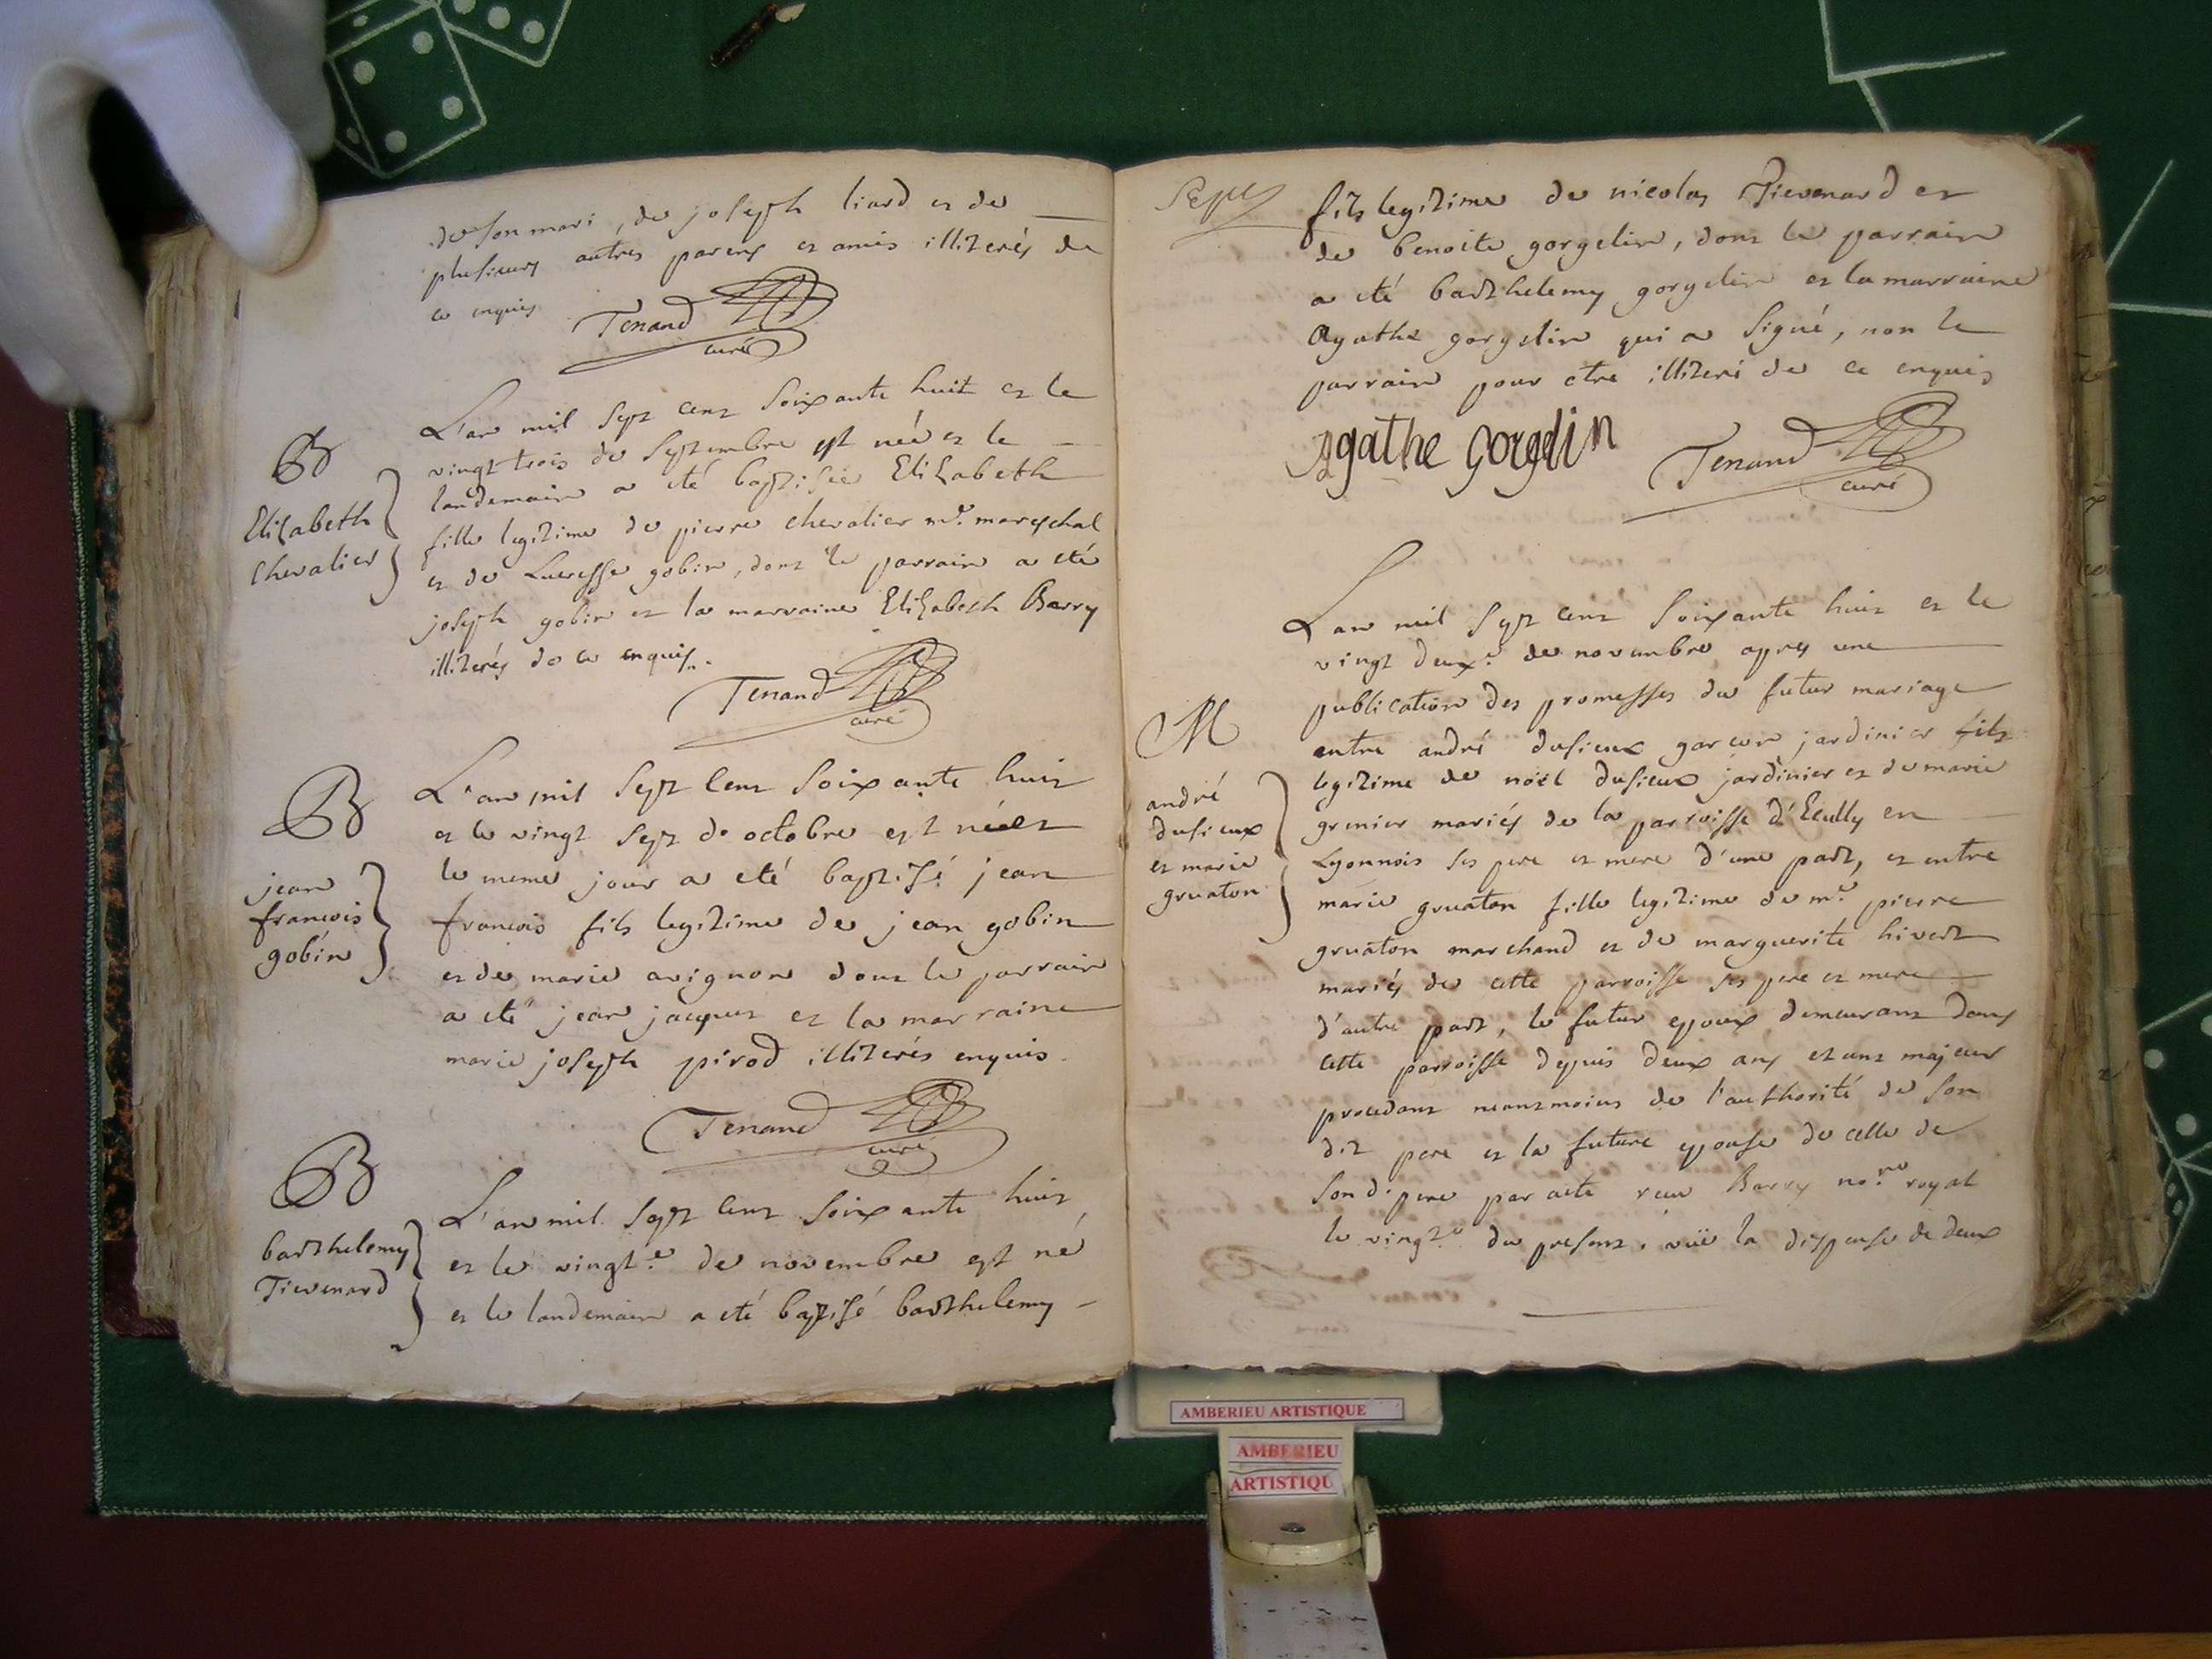 de son mari, de joseph liard et de
plusieurs autres parens et amis illiterés de
ce enquis
Tenand
curé
B
Elizabeth
chevalier
L'an mil sept cent soixante huit et le
vingt trois de septembre est née et le
landemain a eté baptisée Elizabeth
fille legitime de pierre chevalier md. mareschal
et de Lucresse gobin, dont le parrain a eté
joseph gobin et la marraine Elizabeth Barry
illiterés de ce enquis.
Tenand
curé
B
jean
francois
gobin
L'an mil sept cent soixante huit
et le vingt sept de octobre est né et
le meme jour a eté baptisé jean
francois fils legitime de jean gobin
et de marie avignon dont le parrain
a eté jean jacques et la marraine
marie joseph pirod illiterés enquis.
Tenand
curé
B
barthelemy
Tievenard
L'an mil sept cent soixante huit
et le vingt.e de novembre est né
et le landemain a eté baptisé barthelemy
Sept
fils legitime de nicolas Tievenard et
de benoite gorgelin, dont le parrain
a eté barthelemy gorgelin et la marraine
Agathe gorgelin qui a signé, non le
parrain pour etre illiteré de ce enquis
Agathe gorgelin
Tenand
curé
M
andré
dusieux
et marie
gruaton
L'an mil sept cent soixante huit et le
vingt deux.e de novembre apres une
publication des promesses du futur mariage
entre andré dusieux garçon jardinier fils
legitime de noël dusieux jardinier et de marie
grenier mariés de la parroisse d'Ecully en
Lyonnois ses pere et mere d'une part, et entre
marie gruaton fille legitime de mr. pierre
gruaton marchand et de marguerite hivert
mariés de cette parroisse ses pere et mere
d'autre part, le futur epoux demeurant dans
cette parroisse depuis deux ans etant majeur
procedant neantmoins de l'authorité de son
dit pere et la future epouse de celle de
son d. pere par acte reçu Barry no.re royal
le vingt.e du present, vüe la dispense de deux
AMBERIEU ARTISTIQUE
AMBERIEU
ARTISTIQU